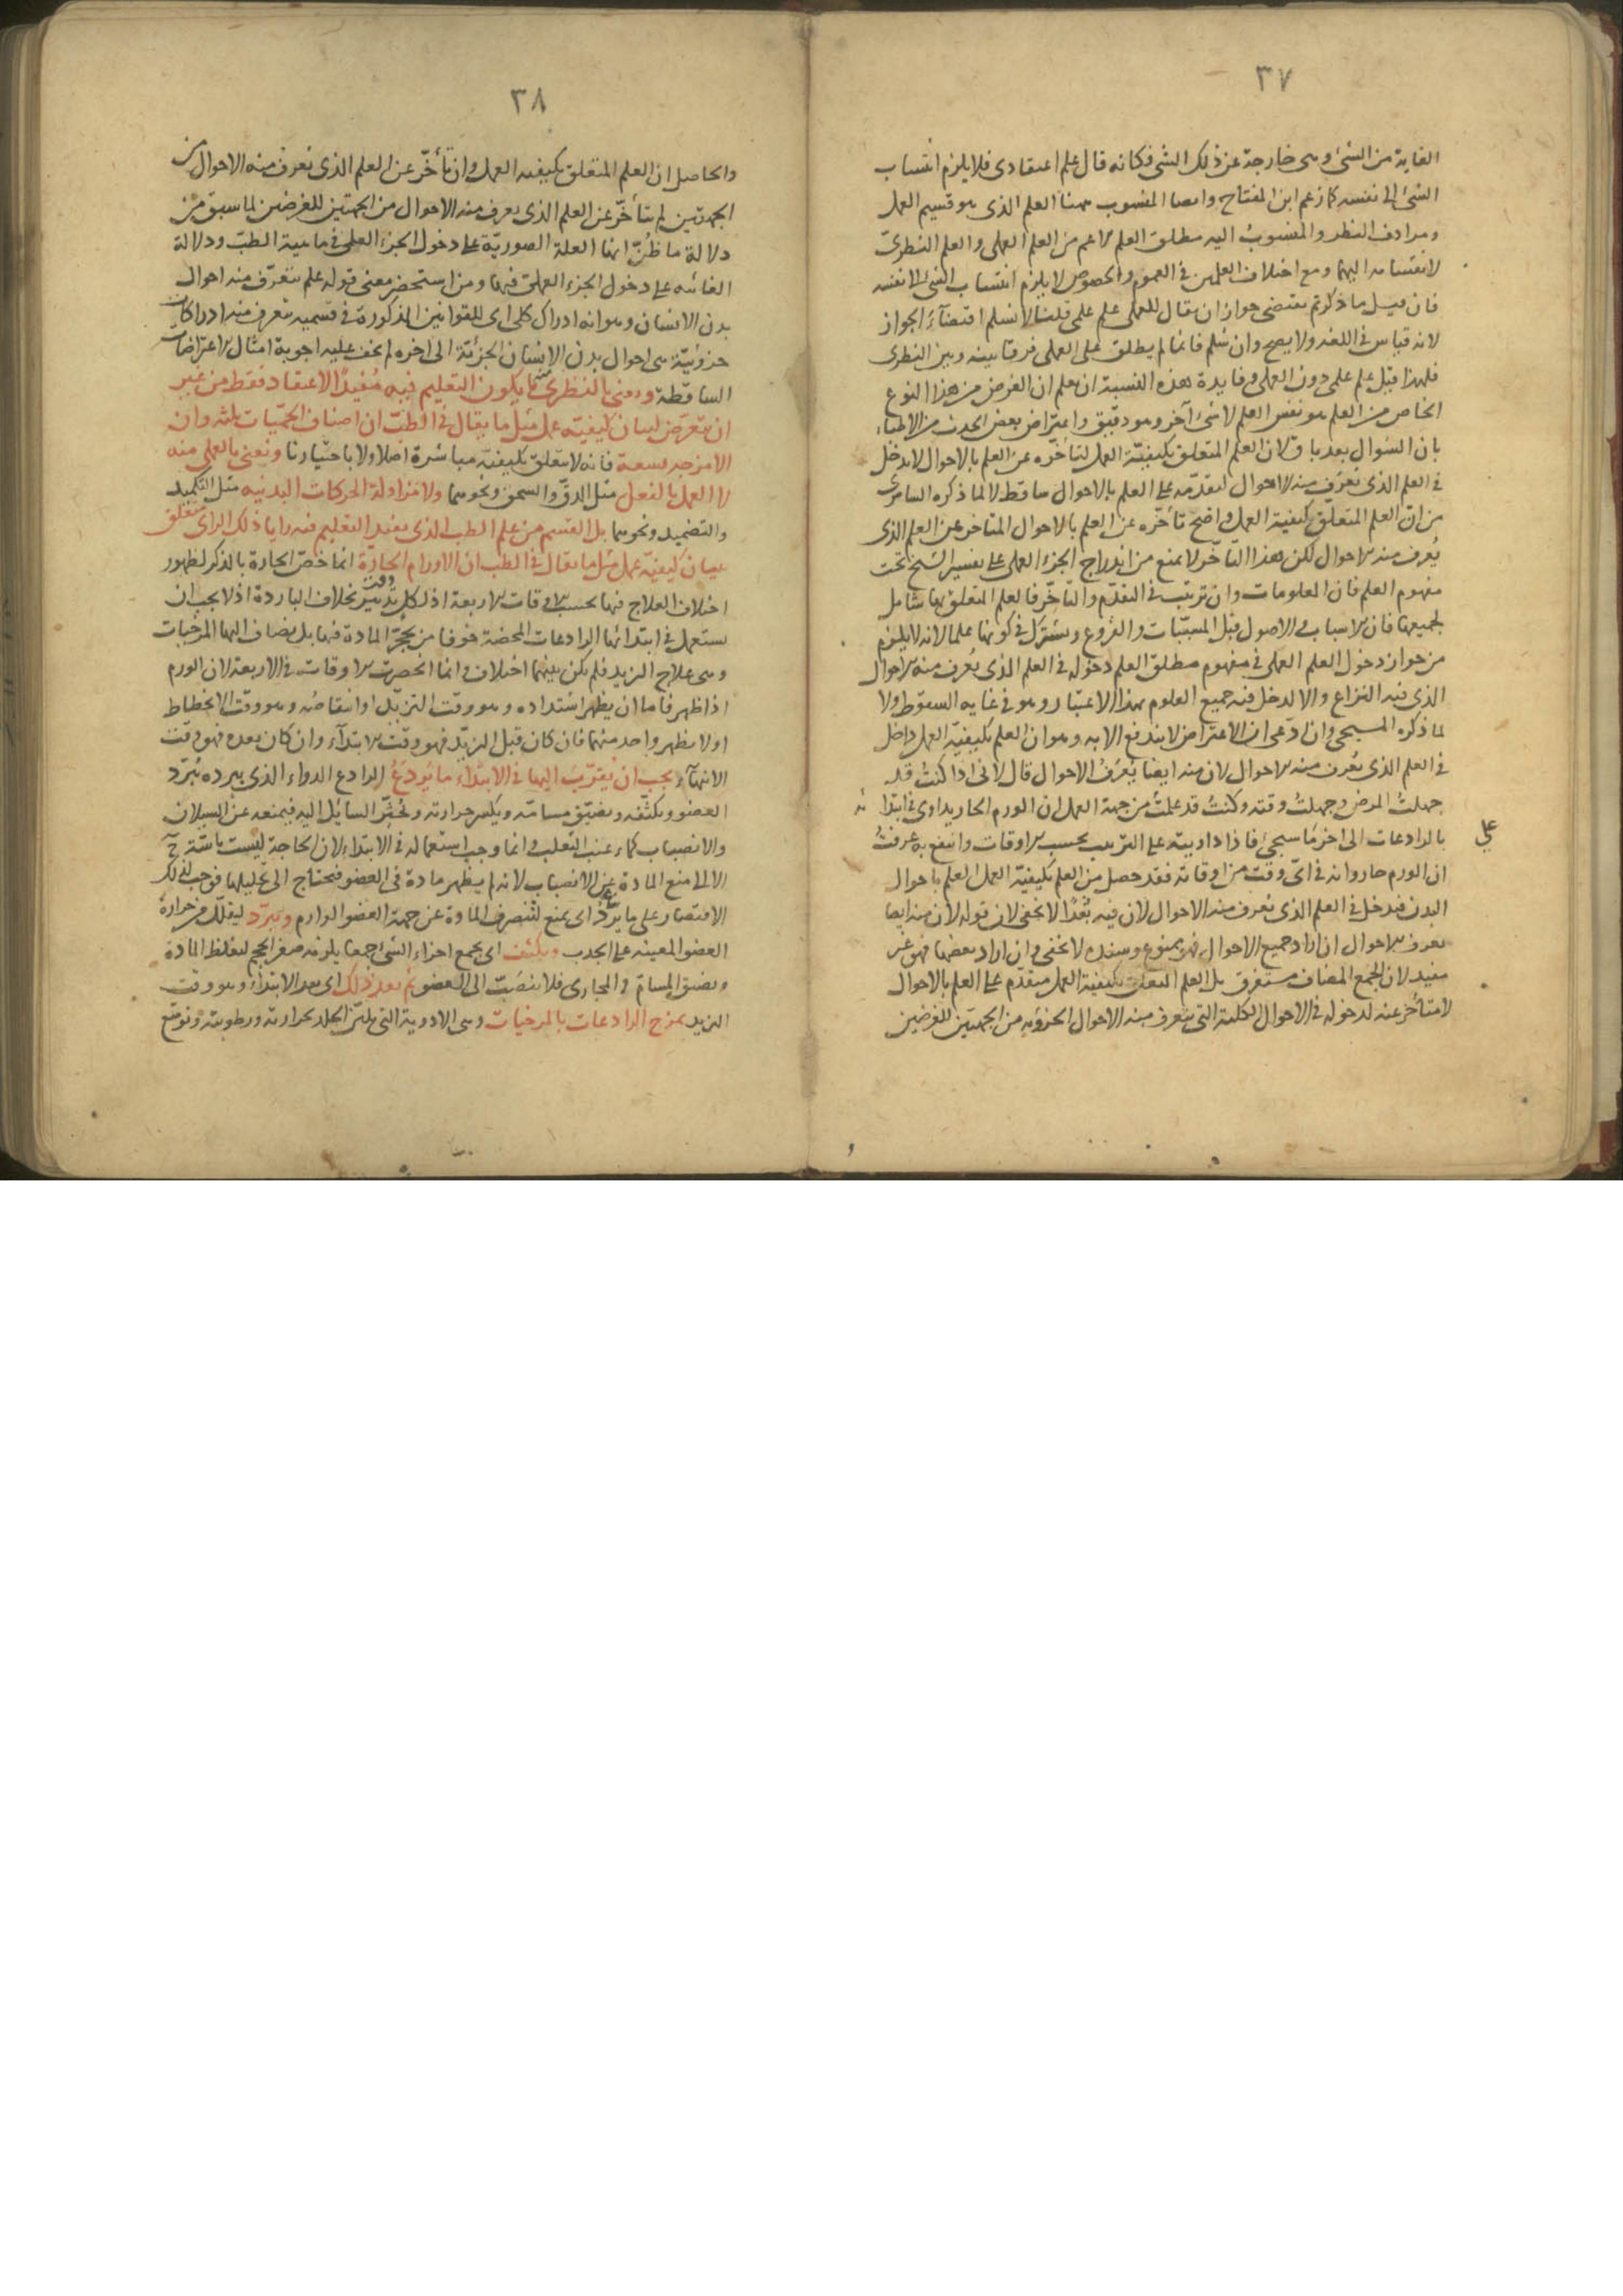 ٣٧
الغاية من الشئ وهى خارجة عن ذلك الشئ فكانه قال علم اعتقادى فلا يلزم انتساب
الشئ الى نفسه كما زعم ابن المفتاح واما المنسوب ههنا العلم الذى هو قسيم العمل
ومرادف النظر والمنسوب اليه مطلق العلم الاعم من العلم العملى والعلم النظرىّ
لانقسامه اليهما ومع اختلاف العلمين فى العموم والخصوص لا يلزم انتساب الشئ الى نفسه
فان قيل ما ذكرتم يقتضى جواز ان يقال للعملى علم علمى قلنا لا نسلم اقتضآء الجواز
لانه قياس فى اللغة ولا يصح وان سُلم فانما لم يطلق على العملى فرقا بينه وبين النظرى
فلهذا قيل علم علمى دون العملى وفايدة هذه النسبة ان يعلم ان الغرض من هذا النوع
الخاص من العلم هو نفس العلم لا شئ آخر وهو دقيق واعتراض بعض الحدث من الاطباء
بان السؤال بعد باق لان العلم المتعلق بكيفيّة العمل لتأخّره عن العلم بالاحوال لا يدخل
فى العلم الذى تُعرَف منه الاحوال لتقدّمه على العلم بالاحوال ساقط لا لما ذكره السامرى
من انّ العلم المتعلّق بكيفيّة العمل واضح تأخّره عن العلم بالاحوال المتأخر عن العلم الذى
يُعرف منه الاحوال لكن هذا التأخّر لا يمنع من اندراج الجزء العملى على تفسير الشيخ تحت
مفهوم العلم فان المعلومات وان ترتبت فى التقدّم والتأخّر فالعلم المتعلق بها شامل
لجميعها فان الاسباب والاصول قبل المسبّبات والفروع ويشترك فى كونها علما لانه لا يلزم
من جواز دخول العلم العملى فى مفهوم مطلق العلم دخوله فى العلم الذى يُعرف منه الاحوال
الذى فيه النزاع والا لدخل فيه جميع العلوم بهذا الاعتبار وهو فى غاية السقوط ولا
لما ذكره المسيحى وان ادّعى ان الاعتراض لا يندفع الا به وهو ان العلم بكيفيّة العمل داخل
فى العلم الذى يُعرف منه الاحوال لان منه ايضا يُعرَفُ الاحوال قال لانى اذا كنتُ قد
جهلتُ المرض وجهلتُ وقته وكنتُ قد علمتُ من جهة العمل ان الورم الحار يداوى فى ابتدا
ئه
بالرادعات الى اخر ما سيجئ فاذا داويته على الترتيب بحسب الاوقات وانتفع به عرفتُ
ان الورم حار وانه فى اىّ وقت من اوقاته فقد حصل من العلم بكيفيّة العمل العلم باحوال
البدن فيدخل فى العلم الذى تعرف منه الاحوال لان فيه بُعْدًا لا يخفى لان قوله لان منه ايضا
يعرف الاحوال ان اراد جميع الاحوال فهو ممنوع وسنده لا يخفى وان اراد بعضها فهو غير
مفيد لان الجمع المضاف مستغرق بل العلم المتعلق بكيفيّة العمل متقدّم على العلم بالاحوال
لا متأخر عنه لدخوله فى الاحوال الكلية التى يتعرف منه الاحوال الجزؤيه من الجهتين للغرضين
٣٨
والحاصل ان العلم المتعلق بكيفيه العمل وان تأخّر عن العلم الذى تعرف منه الاحوال من
الجهتين لم يتأخّر عن العلم الذى يعرف منه الاحوال من الجهتين للغرضين لما سبق من
دلالة ما ظُنّ انها العلة الصوريّة على دخول الجزء العملى فى ماهية الطبّ ودلالة
الغائيه على دخول الجزء العملى فيها ومن استحضر معنى قوله علم يتعرّف منه احوال
بدن الانسان وهو انه ادراك كلى اى للقوانين المذكورة فى قسميه تعرف منه ادراكات
جزؤيّة هى احوال بدن الانسان الجزئيّة الى اخره لم يخف عليه اجوبة امثال الاعتراضات
الساقطة ونعنى بالنظرى منه ما يكون التعليم فيه مُفيدًا الاعتقاد فقط من غير
ان يتعرّض لبيان كيفيّه عمل مثل ما يقال فى الطبّ ان اصناف الحمّيات ثلثه وان
الامزجه تسعة فانه لا يتعلق بكيفيّه مباشرة اصلا ولا باختيارنا ونعنى بالعملى منه
لا العمل بالفعل مثل الدقّ والسحق ونحوهما ولا مزاولة الحركات البدنيه مثل التكميد
والتضميد ونحوهما بل القسم من علم الطب الذى يفيد التعليم فيه رايا ذلك الراى متعلق
ببيان كيفيّه عمل مثل ما يقال فى الطب ان الاورام الحارّة انما خصّ الحارة بالذكر لظهور
اختلاف العلاج فيها بحسب الاوقات الاربعة اذ لكل وقت تدبير بخلاف الباردة اذ لا يجب ان
يستعمل فى ابتدائها الرادعات المحضة خوفا من تحجّر المادة فيها بل يضاف اليها المرخيات
وهى علاج التزيد فلم يكن بينهما اختلاف وانما انحصرت الاوقات فى الاربعة لان الورم
اذا ظهر فاما ان يظهر اشتداده وهو وقت التزيّد او انتقاصه وهو وقت الانحطاط
او لا يظهر واحد منهما فان كان قبل التزيّد فهو وقت الابتدآء وان كان بعده فهو وقت
الانتهآء يجب ان يُقرّبَ اليها فى الابتداء ما يَردَعُ الرادع الدواء الذى ببرده يُبَرّد
العضو ويكثّفه ويضيّق مسامّه ويكسر حرارته ويُخثّر السائل اليه فيمنعه عن السيلان
والانصباب كماء عنب الثعلب وانما وجب استعماله فى الابتداء لان الحاجة ليست ماسّة ح
الا الى منع المادة عن الانصباب لانه لم يظهر مادة فى العضو فيحتاج الى تحليلها فوجب لذلك
الاقتصار على ما يردّ اى يمنع لتنصرف المادة عن جهة العضو الوارم ويبرّد ليقلّل من حرارة
العضو المعينه على الجذب ويكثف اى يجمع اجزاء الشئ جمعا يلزمه صغر الحجم ليغلظ المادة
ويضيق المسامّ والمجارى فلا ينصَبّ الى العضو ثم بعد ذلك اى بعد الابتداء وهو وقت
التزيد يمزج الرادعات بالمرخيات وهى الادوية التى يليّن الجلد بحرارته ورطوبته وتوسّع